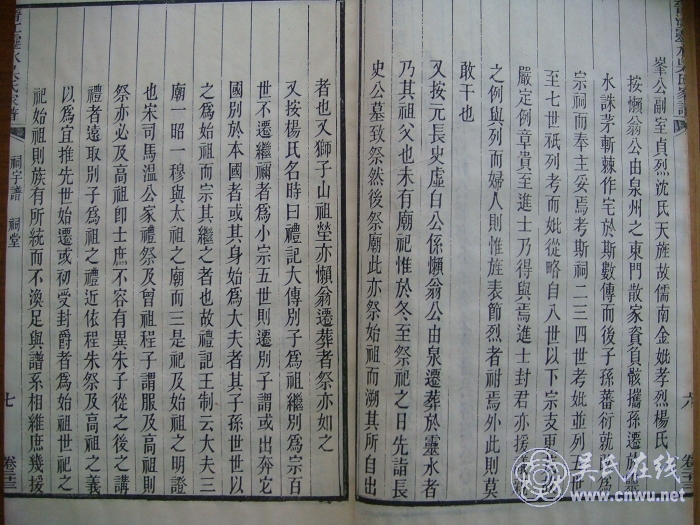 峯公副室貞烈沈氏天旌故儒南金妣孝烈楊氏
按懶翁公由泉州之東門散家資負骸攜孫遷於
水誅茅斬棘作宅於斯數傳而後子孫蕃衍就
宗祠而奉主妥焉考斯祠二三四世考妣並列五
至七世祇列考而妣從略自八世以下宗支更
嚴定例章貢至進士乃得與焉進士封君亦援
之例與列而婦人則惟旌表節烈者祔焉外此則莫
敢干也
又按元長史虛白公係懶翁公由泉遷葬於靈水者
乃其祖父也未有廟祀惟於冬至祭祀之日先詣長
史公墓致祭然後祭廟此亦祭始祖而溯其所自出
者也又獅子山祖塋亦懶翁遷葬者祭亦如之
又按楊氏名時曰禮記大傳別子為祖繼別為宗百
世不遷繼禰者為小宗五世則遷別子謂或出奔它
國別於本國者或其身始為大夫者其子孫世世以
之為始祖而宗其繼之者也故禮記王制云大夫三
廟一昭一穆與太祖之廟而三是祀及始祖之明證
也宋司馬温公家禮祭及曾祖程子謂服及高祖則
祭亦必及高祖即士庶不容有異朱子從之後之講
禮者遠取別子為祖之禮近依程朱祭及高祖之義
以為宜推先世始遷或初受封爵者為始祖世祀之
祀始祖則族有所統而不渙足與譜系相維庶幾援
祠宇譜 祠堂 七
吴氏在线
www.cnwu.net